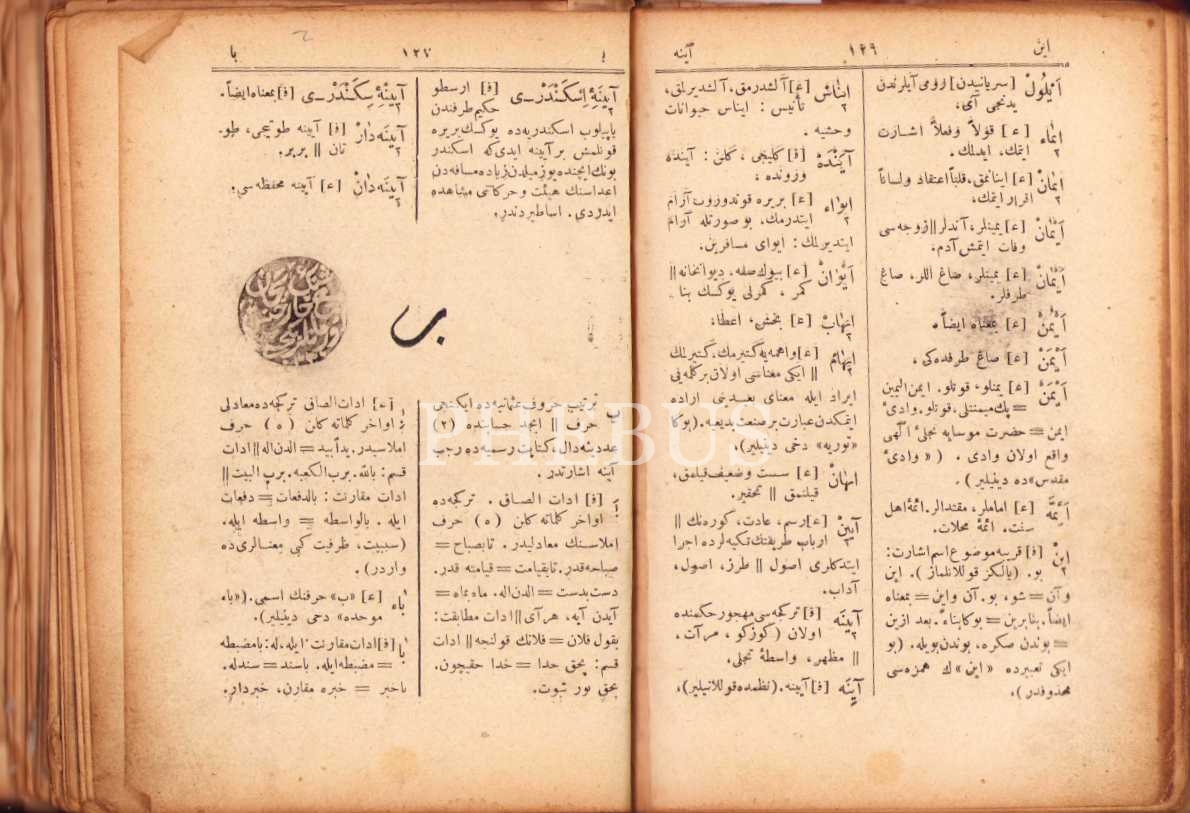 اين ١٢٦ آينه
اَيْلُولْ [سريانيدن] رومى آيلرندن
يدنجى آى،
ايماء [ع] قولاً وفعلاً اشارت
ايتمك، ايدلك.
ايمانْ [ع] اينانمق، قلباً اعتقاد ولساناً
اقرار ايتمك،
اَيْمانْ [ع] يمينلر، آندلر || زوجه سى
وفات ايتمش آدم.
اَيْمانْ [ع] يمينلر، صاغ اللر، صاغ
طرفلر.
اَيْمُنْ [ع] بمعناه ايضاً،
اَيْمَنْ [ع] صاغ طرفده كى،
اَيْمَنْ [ع] يمنلو، قوتلو. ايمن اليمين
= پك ميمنتلى، قوتلو. وادئ
ايمن = حضرت موسايه تجلئ الٓهى
واقع اولان وادى. («وادئ
مقدس» ده دينيلير).
اَئِمَّه [ع] اماملر، مقتدالر. ائمهٔ اهل
سنت، ائمهٔ محلات.
اينْ [ف] قريبه موضوع اسم اشارت:
بو. (يالكز قوللانلماز). اين
وآن = شو، بو. آن واين = بمعناه
ايضاً. بنابرين = بوكا بناءً. بعد ازين
= بوندن صكره، بوندن بويله. (بو
ايكى تعبيرده «اين» ك همزه سى
محذوفدر).
ايناسْ [ع] آلشدرمق، آلشديرلمق،
تأنيس: ايناس حيوانات
وحشيه.
آيَنْدَهْ [ف] كليجى، كلن: آينده
ورونده،
ايواء [ع] بريره قوندوروب آرام
ايتدرمك. بو صورتله آرام
ايتديرلك: ايواى مسافرين.
اَيْوانْ [ع] بيوك صفه، ديوانخانه ||
كمر، كمرلى يوكسك بنا.
ايهابْ [ع] بخشى، اعطا،
ايهامْ [ع] واهمه يه كتيرمك، كتيرلك
|| ايكى معناسى اولان بر كلمه يى
ايراد ايله معناى بعيدينى اراده
ايتمكدن عبارت بر صنعت بديعيه. (بوكا
«توريه» دخى دينيلير).
ايهانْ [ع] سست وضعيف قيلمق،
قيلنمق || تحقير.
آيينْ [ع] رسم، عادت، كوره نك ||
ارباب طريقتك تكيه لرده اجرا
ايتدكلرى اصول || طرز، اصول،
آداب.
آيينَه [ف] تركجه سى مهجور حكمنده
اولان (كوزكو، مرآت،
|| مظهر، واسطهٔ تجلى.
آيِنَه [ف] آيينه. (نظمده قوللانيلير)،
ب ١٢٧ با
آيينَهٔ اِسْكَنْدَرى [ف] ارسطو
حكيم طرفندن
ياپيلوب اسكندريه ده يوكسك بريره
قونلمش بر آيينه ايدى كه اسكندر
بونك ايچنده يوز ميلدن زياده مسافه دن
اعداسنك هيئت وحركاتنى مشاهده
ايدردى. اساطيردندر.
آيينَهٔ سِكَنْدَرى [ف] بمعناه ايضاً.
آيينَه دارْ [ف] آيينه طوتيجى، طو-
تان || بربر.
آيينَه دانْ [ع] آيينه محفظه سى،
ب
ب ترتيب حروف عثمانيه ده ايكنجى
حرف || ابجد حسابنده (٢)
عددينه دال، كتابت رسميه ده رجب
آينه اشارتدر.
بَ [ف] ادات الصاق. تركجه ده
اواخر كلماته كلن (ه) حرف
املاسنك معادليدر. تابصباح =
صباحه قدر. تابقيامت = قيامته قدر.
دست بدست = الدن اله. ماه بماه =
آيدن آيه، هر آى || ادات مطابقت:
بقول فلان = فلانك قولنجه || ادات
قسم: بحق خدا = خدا حقيچون.
بحق نور نبوت.
بِ [ع] ادات الصاق تركجه ده معادلى
اواخر كلماته كلن (ه) حرف
املاسيدر. يداً بيد = الدن اله || ادات
قسم: بالله. برب الكعبه. برب البيت ||
ادات مقارنت: بالدفعات = دفعات
ايله. بالواسطه = واسطه ايله.
(سببيت، ظرفيت كبى معنالرى ده
واردر).
باء [ع] «ب» حرفنك اسمى. («باء
موحده» دخى دينيلير).
با [ف] ادات مقارنت: ايله، له: بامضبطه
= مضبطه ايله. باسند = سندله.
باخبر = خبره مقارن، خبردار.
PHEBUS